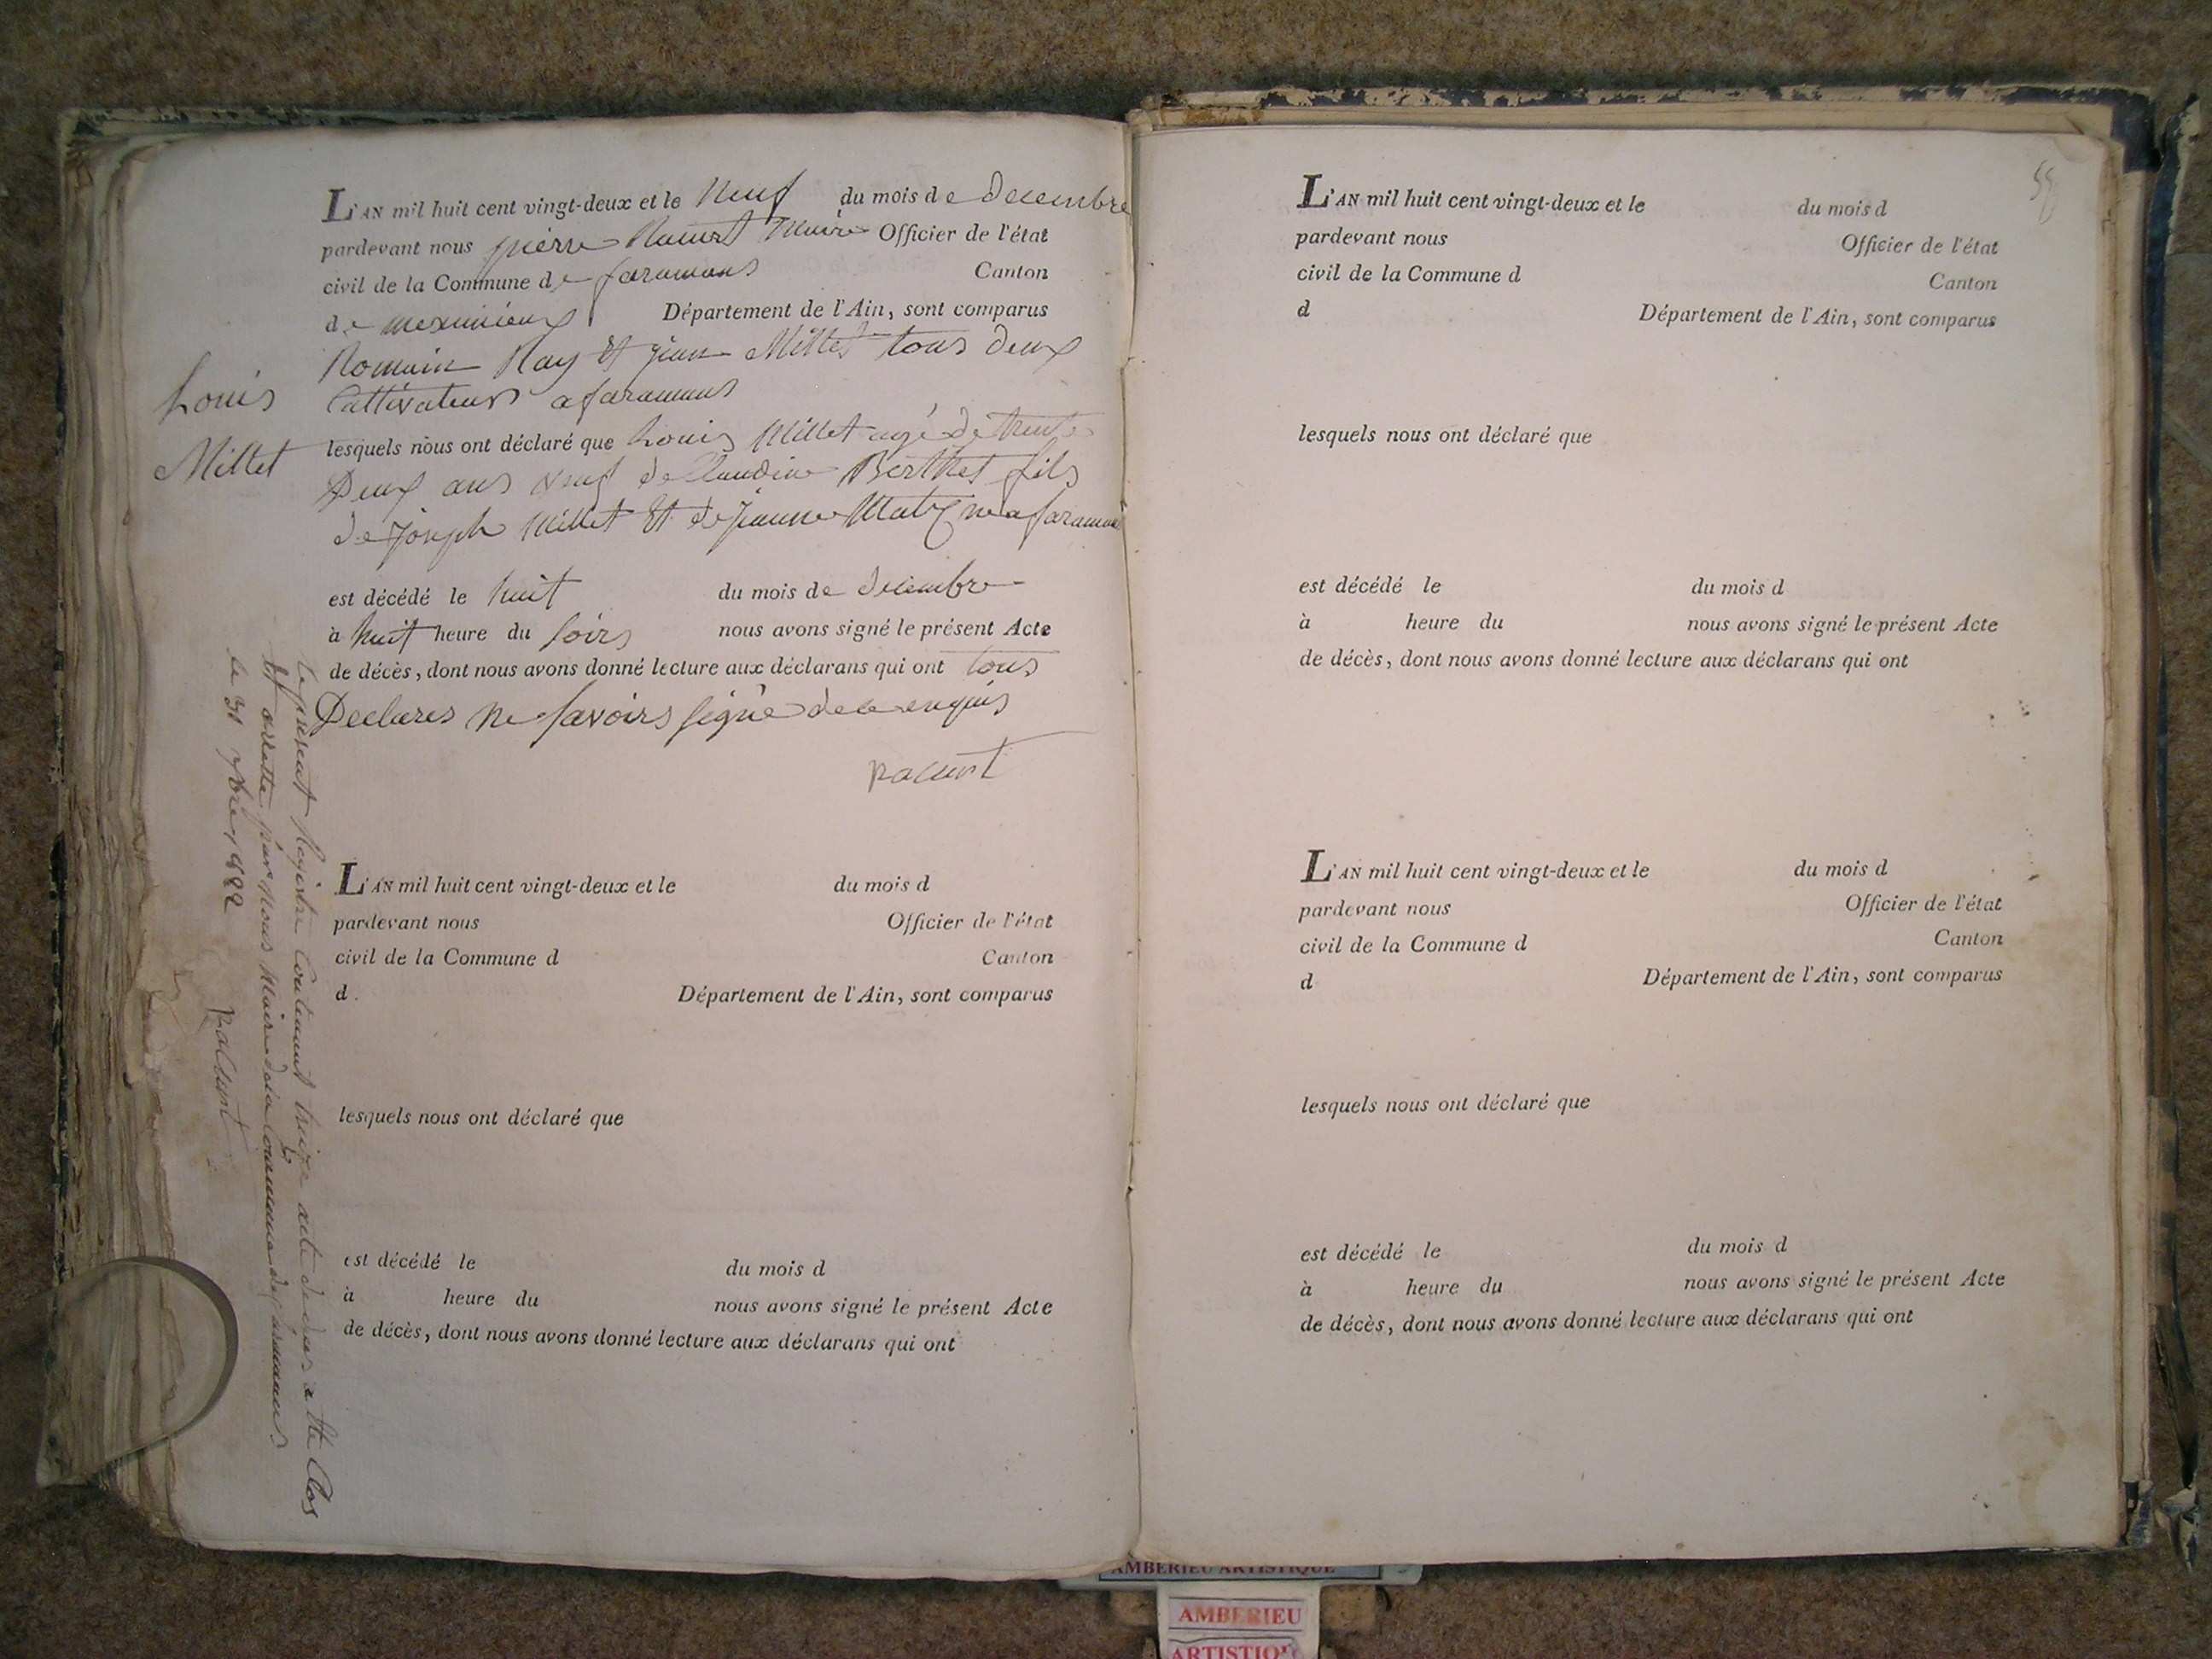 L'AN mil huit cent vingt-deux et le neuf du mois de decembre
pardevant nous pierre Racurt Maire Officier de l'état
civil de la Commune de faramans Canton
de meximieux Département de l'Ain, sont comparus
Romain Ray Et jean Millet tous deux
Cattivateurs a faramans
Louis
Millet
lesquels nous ont déclaré que Louis Millet agé de trente
Deux ans veuf de Claudine Berthet fils
de Joseph Millet Et de jeanne ne a faramans
est décédé le huit du mois de decembre
à huit heure du soirs nous avons signé le présent Acte
de décès, dont nous avons donné lecture aux déclarans qui ont tous
Declares ne savoirs signé de ce enquis
Racurt
Le present Registre Contenant treize acte de deces a ette Clos
Et arrette par nous Maire de la Commune de faramans
le 31 1822
Racurt
L'AN mil huit cent vingt-deux et le du mois d
pardevant nous Officier de l'état
civil de la Commune d Canton
d Département de l'Ain, sont comparus
lesquels nous ont déclaré que
est décédé le du mois d
à heure du nous avons signé le présent Acte
de décès, dont nous avons donné lecture aux déclarans qui ont
L'AN mil huit cent vingt-deux et le du mois d
pardevant nous Officier de l'état
civil de la Commune d Canton
d Département de l'Ain, sont comparus
lesquels nous ont déclaré que
est décédé le du mois d
à heure du nous avons signé le présent Acte
de décès, dont nous avons donné lecture aux déclarans qui ont
L'AN mil huit cent vingt-deux et le du mois d
pardevant nous Officier de l'état
civil de la Commune d Canton
d Département de l'Ain, sont comparus
lesquels nous ont déclaré que
est décédé le du mois d
à heure du nous avons signé le présent Acte
de décès, dont nous avons donné lecture aux déclarans qui ont
AMBERIEU ARTISTIQUE
AMBERIEU
ARTISTIQU